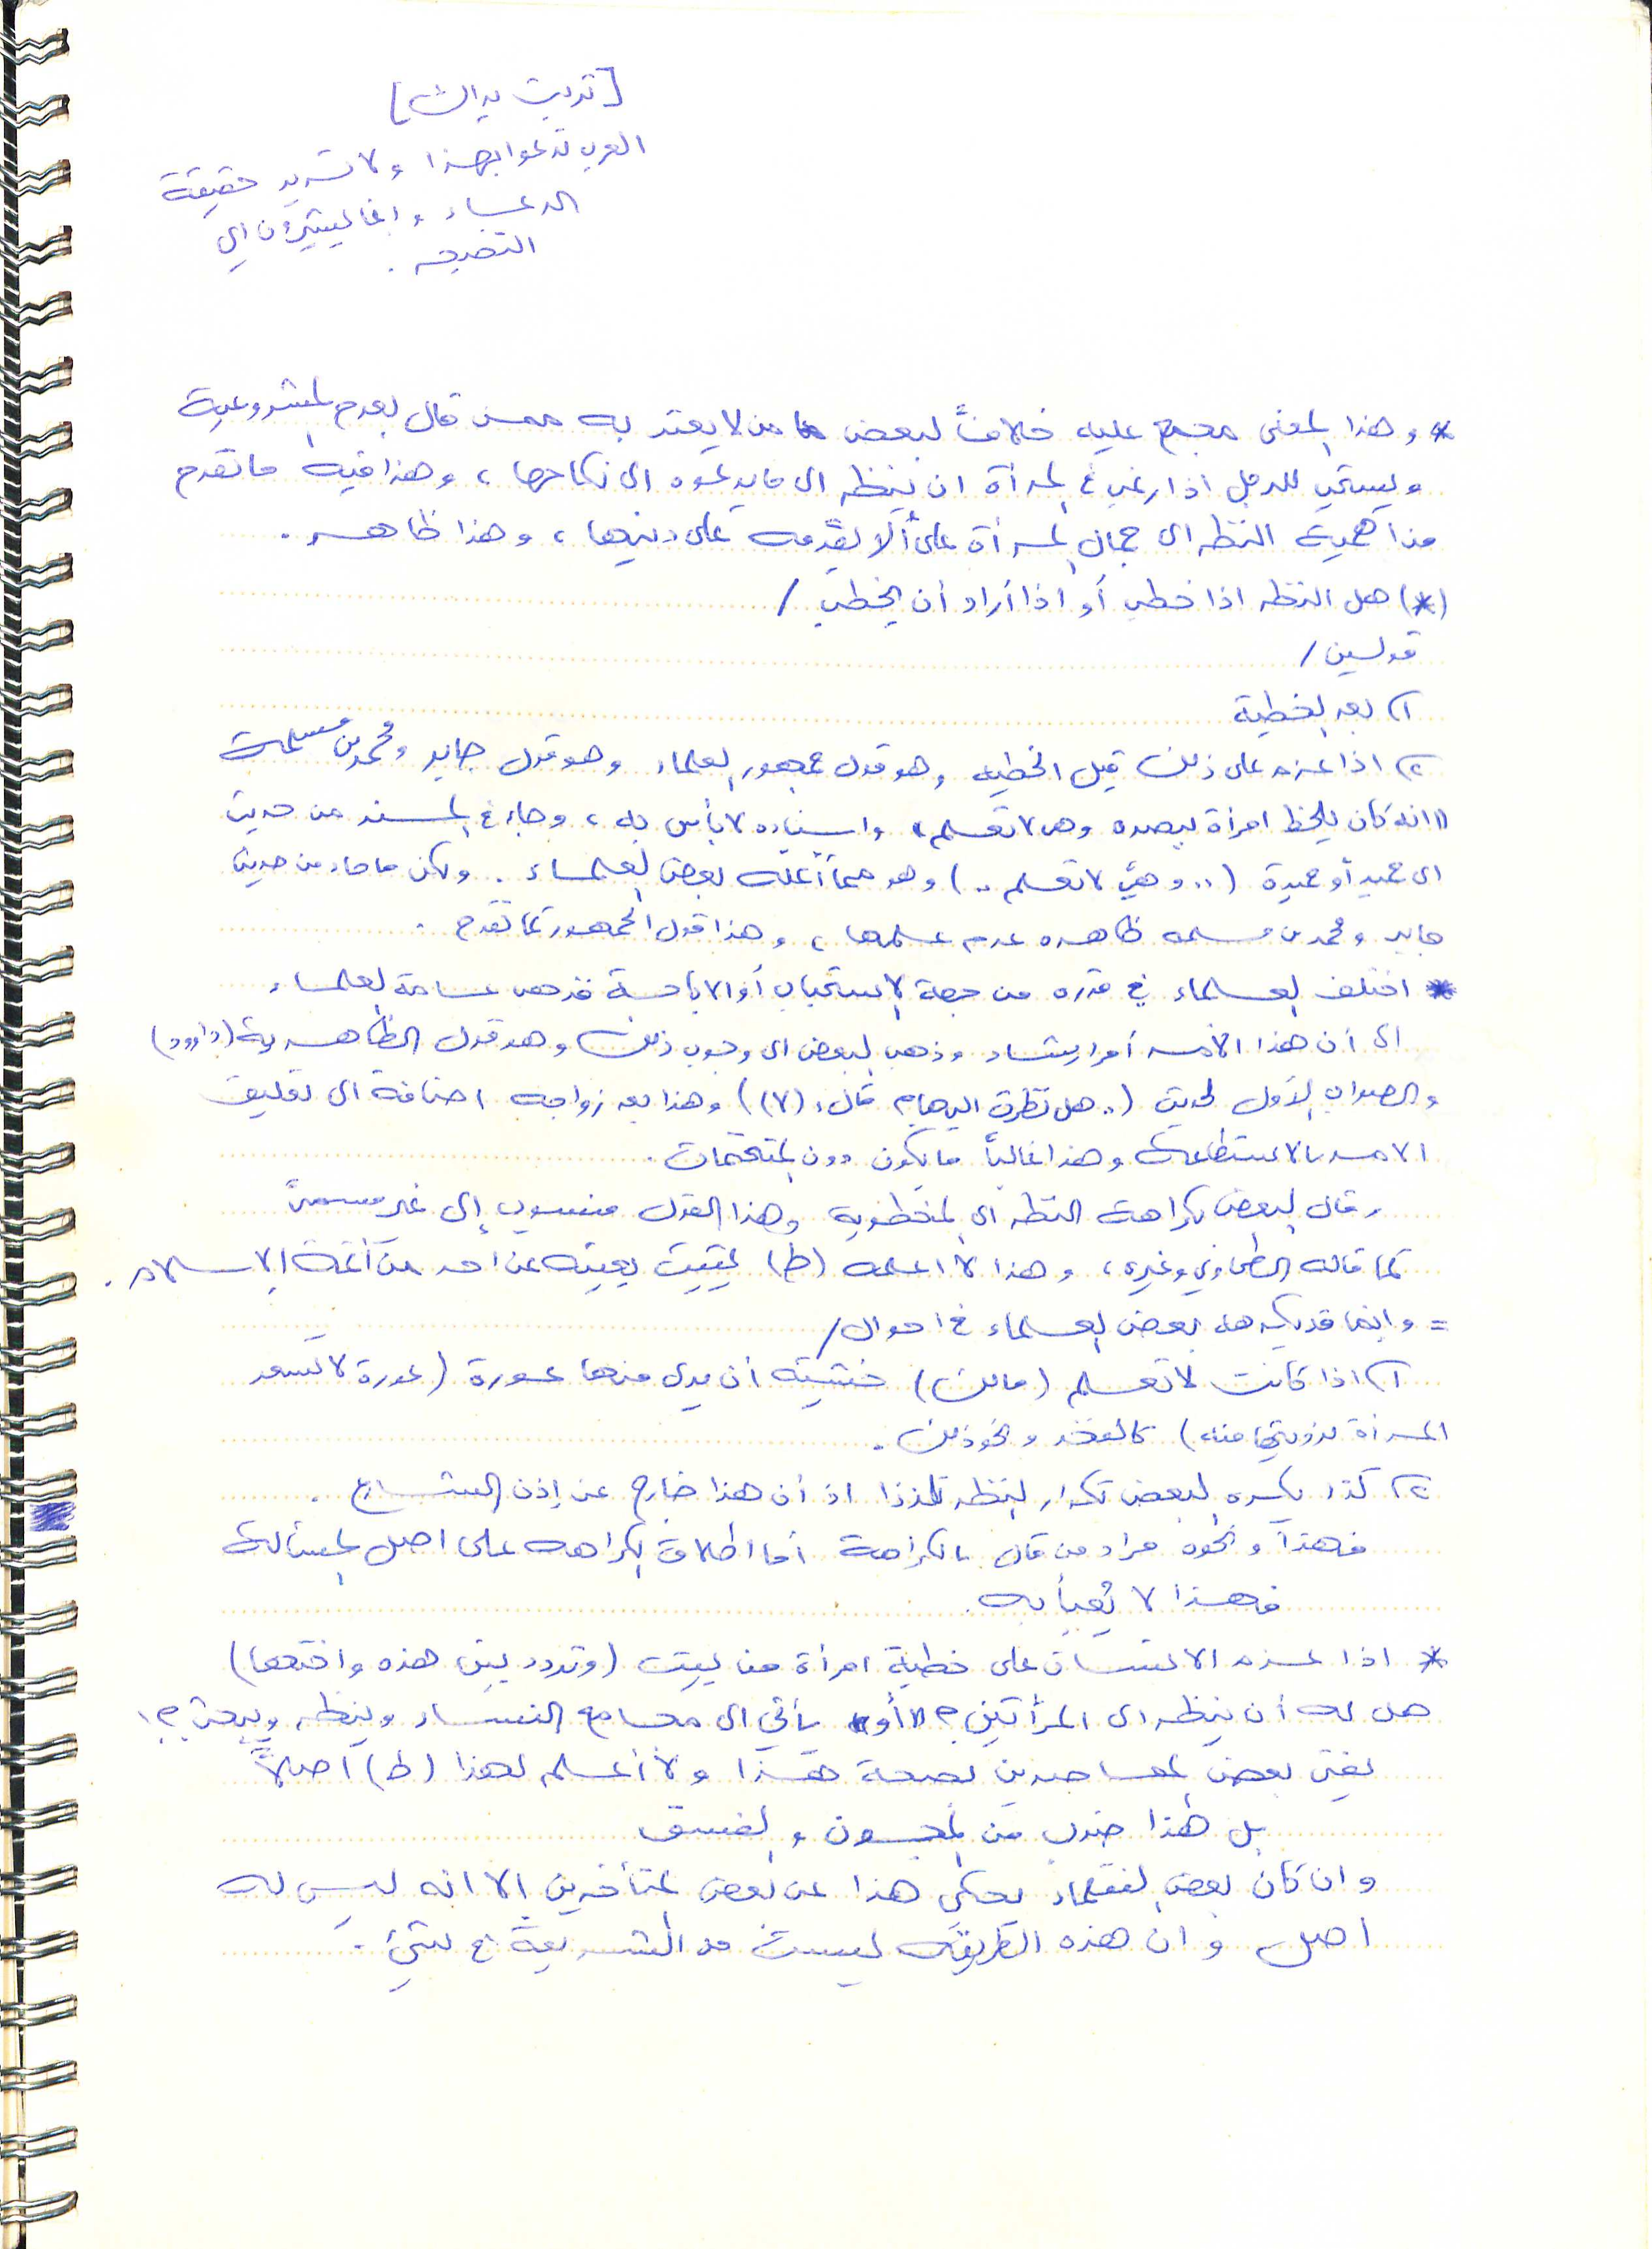 [تربت يداك]
العرب تدعوا بهذا ولا تريد حقيقة
الدعاء وانما يشيرون الى
النصيحه .
* وهذا المعنى مجمع عليه خلافاً لبعض من لا يعتد به ممن قال بعدم المشروعية
ويستحب للرجل اذا رغب في المرأة ان ينظر الى ما يدعوه الى نكاحها ، وهذا فيه ما تقدم
من اهمية النظر الى جمال المرأة على ألا يقدمه على دينها ، وهذا ظاهر .
(*) هل النظر اذا خطب أو اذا أراد أن يخطب /
قولين /
١) بعد الخطبة
٢) اذا عزم على ذلك قبل الخطبه وهو قول جمهور العلماء وهو قول جابر ومحمد بن مسلمة
"انه كان يلحظ امرأة ببصره وهي لا تعلم" واسناده لا بأس به ، وجاء في المسند من حديث
ابي حميد أو حميدة (.. وهي لا تعلم ..) وهو مما أعله بعض العلماء . ولكن ما جاء من حديث
جابر ومحمد بن مسلمه ظاهره عدم علمها ، وهذا قول الجمهور كما تقدم .
* اختلف العلماء في قدره من جهة الاستحباب أو الاباحة فذهب عامة العلماء
الى أن هذا الامر أمر ارشاد وذهب البعض الى وجوب ذلك وهو قول الظاهرية (داود)
والصواب الأول لحديث (.. هل نظرت اليها؟ قال: (لا)) وهذا بعد زواجه اضافة الى تعليق
الامر بالاستطاعة وهذا غالباً ما يكون دون المتحتمات .
وقال البعض بكراهة النظر الى المخطوبه وهذا القول منسوب إلى غير مسمىً
كما قاله الطحاوي وغيره ، وهذا لا اعلمه (ط) يثبت بعينه عن احد من أئمة الاسلام .
= وانما قد يكرهه بعض العلماء في احوال /
١) اذا كانت لا تعلم (مالك) خشية أن يرى منها عورة (عورة لا تسعد
المرأة برؤيتها منه) كالفخذ ونحو ذلك .
٢) كذا يكره البعض تكرار النظر تلذذا اذ أن هذا خارج عن إذن الشارع .
فهذا ونحوه مراد من قال بالكراهة أما اطلاق الكراهه على اصل المسألة
فهذا لا يُعبأ به .
* اذا عزم الانسان على خطبة امرأة من بيت (وتردد بين هذه واختها)
هل له أن ينظر الى المرأتين؟ "أو" يأتي الى مجامع النساء وينظر ويبحث؟!
يفتي بعض المعاصرين بصحة هذا ولا أعلم لهذا (ط) أصلاً
بل هذا ضرب من المجون والفسق
وان كان بعض الفقهاء يحكي هذا عن بعض المتأخرين إلا انه ليس له
اصل وان هذه الطريقه ليست من الشريعة في شيء .